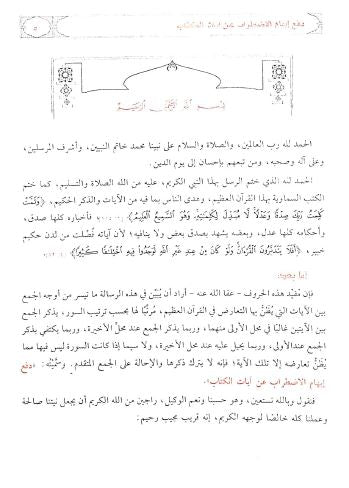 دفع إيهام الاضطراب عن آيات الكتاب
٥
بسم الله الرحمن الرحيم
الحمد لله رب العالمين، والصلاة والسلام على نبينا محمد خاتم النبيين، وأشرف المرسلين،
وعلى آله وصحبه، ومن تبعهم بإحسان إلى يوم الدين.
الحمد لله الذي ختم الرسل بهذا النبي الكريم، عليه من الله الصلاة والتسليم، كما ختم
الكتب السماوية بهذا القرآن العظيم، وهدى الناس بما فيه من الآيات والذكر الحكيم، ﴿وَتَمَّتْ
كَلِمَتُ رَبِّكَ صِدْقًا وَعَدْلًا لَّا مُبَدِّلَ لِكَلِمَاتِهِ وَهُوَ السَّمِيعُ الْعَلِيمُ﴾ فأخباره كلها صدق،
وأحكامه كلها عدل، وبعضه يشهد بصدق بعض ولا ينافيه؛ لأن آياته فُصِّلت من لدن حكيم
خبير، ﴿أَفَلَا يَتَدَبَّرُونَ الْقُرْآنَ وَلَوْ كَانَ مِنْ عِندِ غَيْرِ اللَّهِ لَوَجَدُوا فِيهِ اخْتِلَافًا كَثِيرًا﴾
أما بعد:
فإن مُقيِّد هذه الحروف - عفا الله عنه - أراد أن يُبيِّن في هذه الرسالة ما تيسر من أوجه الجمع
بين الآيات التي يُظَنُّ بها التعارض في القرآن العظيم، مُرتِّبًا لها بحسب ترتيب السور، يذكر الجمع
بين الآيتين غالبًا في محل الأولى منهما، وربما يذكر الجمع عند محلِّ الأخيرة، وربما يكتفي بذكر
الجمع عند الأولى، وربما يحيل عليه عند محل الأخيرة، ولا سيما إذا كانت السورة ليس فيها مما
يُظَنُّ تعارضه إلا تلك الآية؛ فإنه لا يترك ذكرها والإحالة على الجمع المتقدم. وسَمَّيْتُه: «دفع
إيهام الاضطراب عن آيات الكتاب».
فنقول وبالله نستعين، وهو حسبنا ونعم الوكيل، راجين من الله الكريم أن يجعل نيتنا صالحة
وعملنا كله خالصًا لوجهه الكريم، إنه قريب مجيب رحيم: